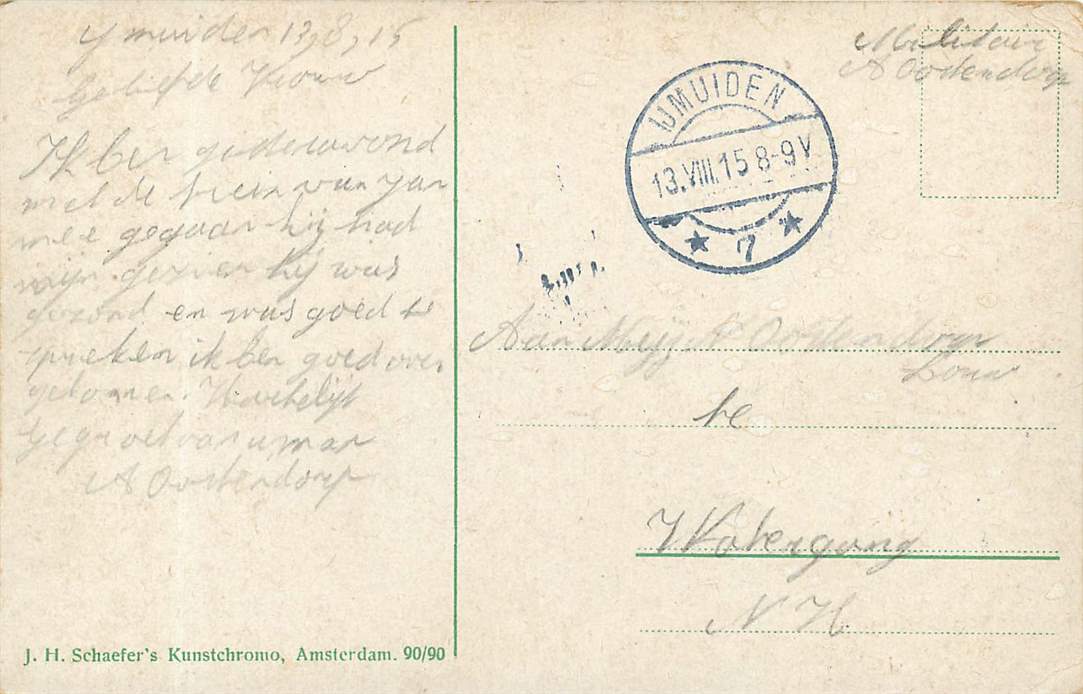 Ymuiden 13,8,15
Geliefde Vrouw
Ik ben gisteravond
met de trein van Jan
mee gegaan hij had
mijn gezien hij was
gezond en was goed te
spreken ik ben goed over
gekomen. Hartelijk
gegroet van u man
A Oostendorp
J. H. Schaefer's Kunstchromo, Amsterdam. 90/90
Militair
A Oostendorp
IJMUIDEN
13.VIII.15 8-9V
7
Aan Mej Oostendorp
te
Watergang
N H